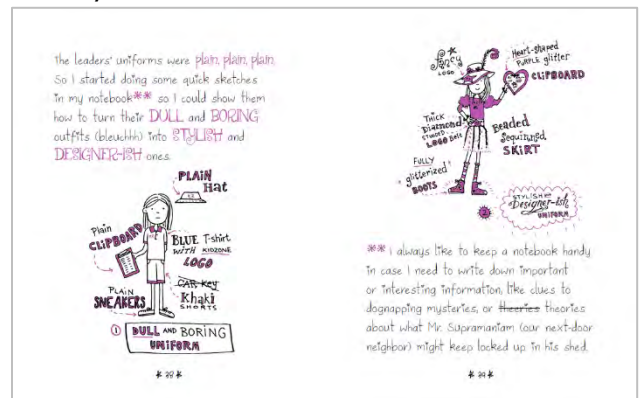 The leaders' uniforms were plain, plain, plain.
So I started doing some quick sketches
in my notebook** so I could show them
how to turn their DULL and BORING
outfits (bleuchh) into STYLISH and
DESIGNER-ISH ones.
PLAIN
Hat
Plain
CLIPBOARD
BLUE T-shirt
WITH KIDZONE
LOGO
PLAIN
SNEAKERS
CAR KEY
Khaki
SHORTS
1 DULL AND BORING
UNIFORM
* 28 *
Fancy
LOGO
Heart-shaped
PURPLE glitter
CLIPBOARD
Thick
Diamond
STUDDED
LOGO Belt
Beaded
Sequinned
SKIRT
FULLY
glitterized
BOOTS
2
STYLISH AND
Designer-ish
UNIFORM
** I always like to keep a notebook handy
in case I need to write down important
or interesting information, like clues to
dognapping mysteries, or theeries theories
about what Mr. Supramaniam (our next-door
neighbor) might keep locked up in his shed.
* 29 *